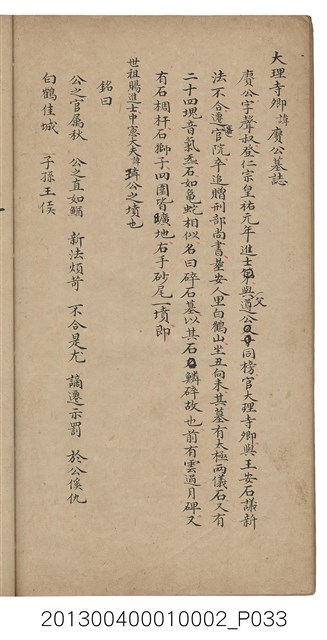 大理寺卿諱賡公墓誌
賡公字聲叔登仁宗皇祐元年進士第與父遵公同榜官大理寺卿與王安石議新
法不合遷官院卒追贈刑部尚書塟安人里白鶴山坐丑向未其墓有太極兩儀石又有
二十四塊音氣石如龜蛇相似名曰碎石墓以其石鱗碎故也前有雲過月碑又
有石棡杆石獅子四圍皆曠地右手砂尾一墳即
世祖賜進士中憲大夫諱瑋公之墳也
銘曰
公之官屬秋 公之直如鰌 新法煩苛 不合是尤 謫遷示罰 於公傒仇
白鶴佳城 子孫王侯
201300400010002_P033